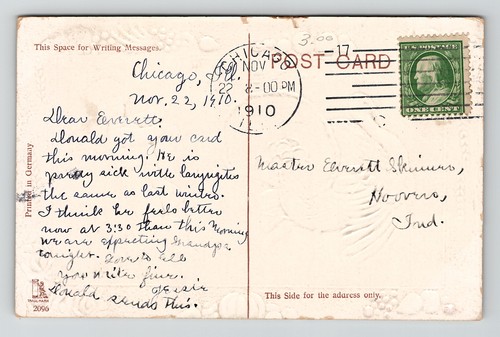 3.00
This Space for Writing Messages.
POST CARD
CHICAGO
NOV
22 8-00 PM
1910
17
U.S. POSTAGE
ONE CENT
Chicago, Ill.
Nov. 22, 1910.
Dear Everett:
Donald got your card
this morning. He is
pretty sick with laryngitis
the same as last winter.
I think he feels better
now at 3:30 than this morning
we are expecting Grandpa
tonight. Love to all
You write fine.
Donald sends this.
Master Everett Skinner,
Hoovers,
Ind.
Printed in Germany
2096
This Side for the address only.